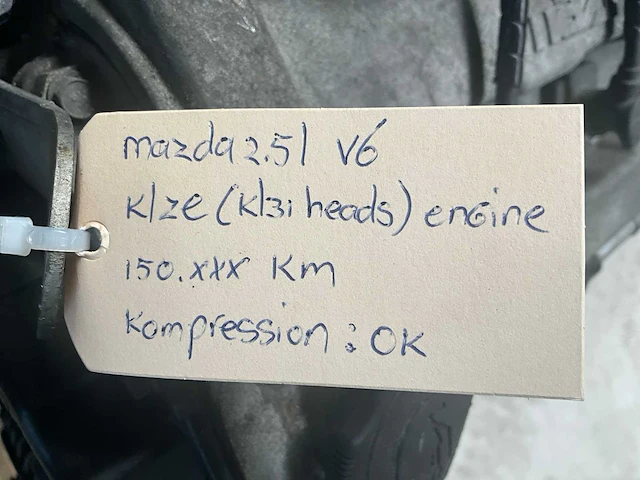 mazda 2.5l V6
Klze (Kl31 heads) engine
150.xxx Km
Kompression : OK